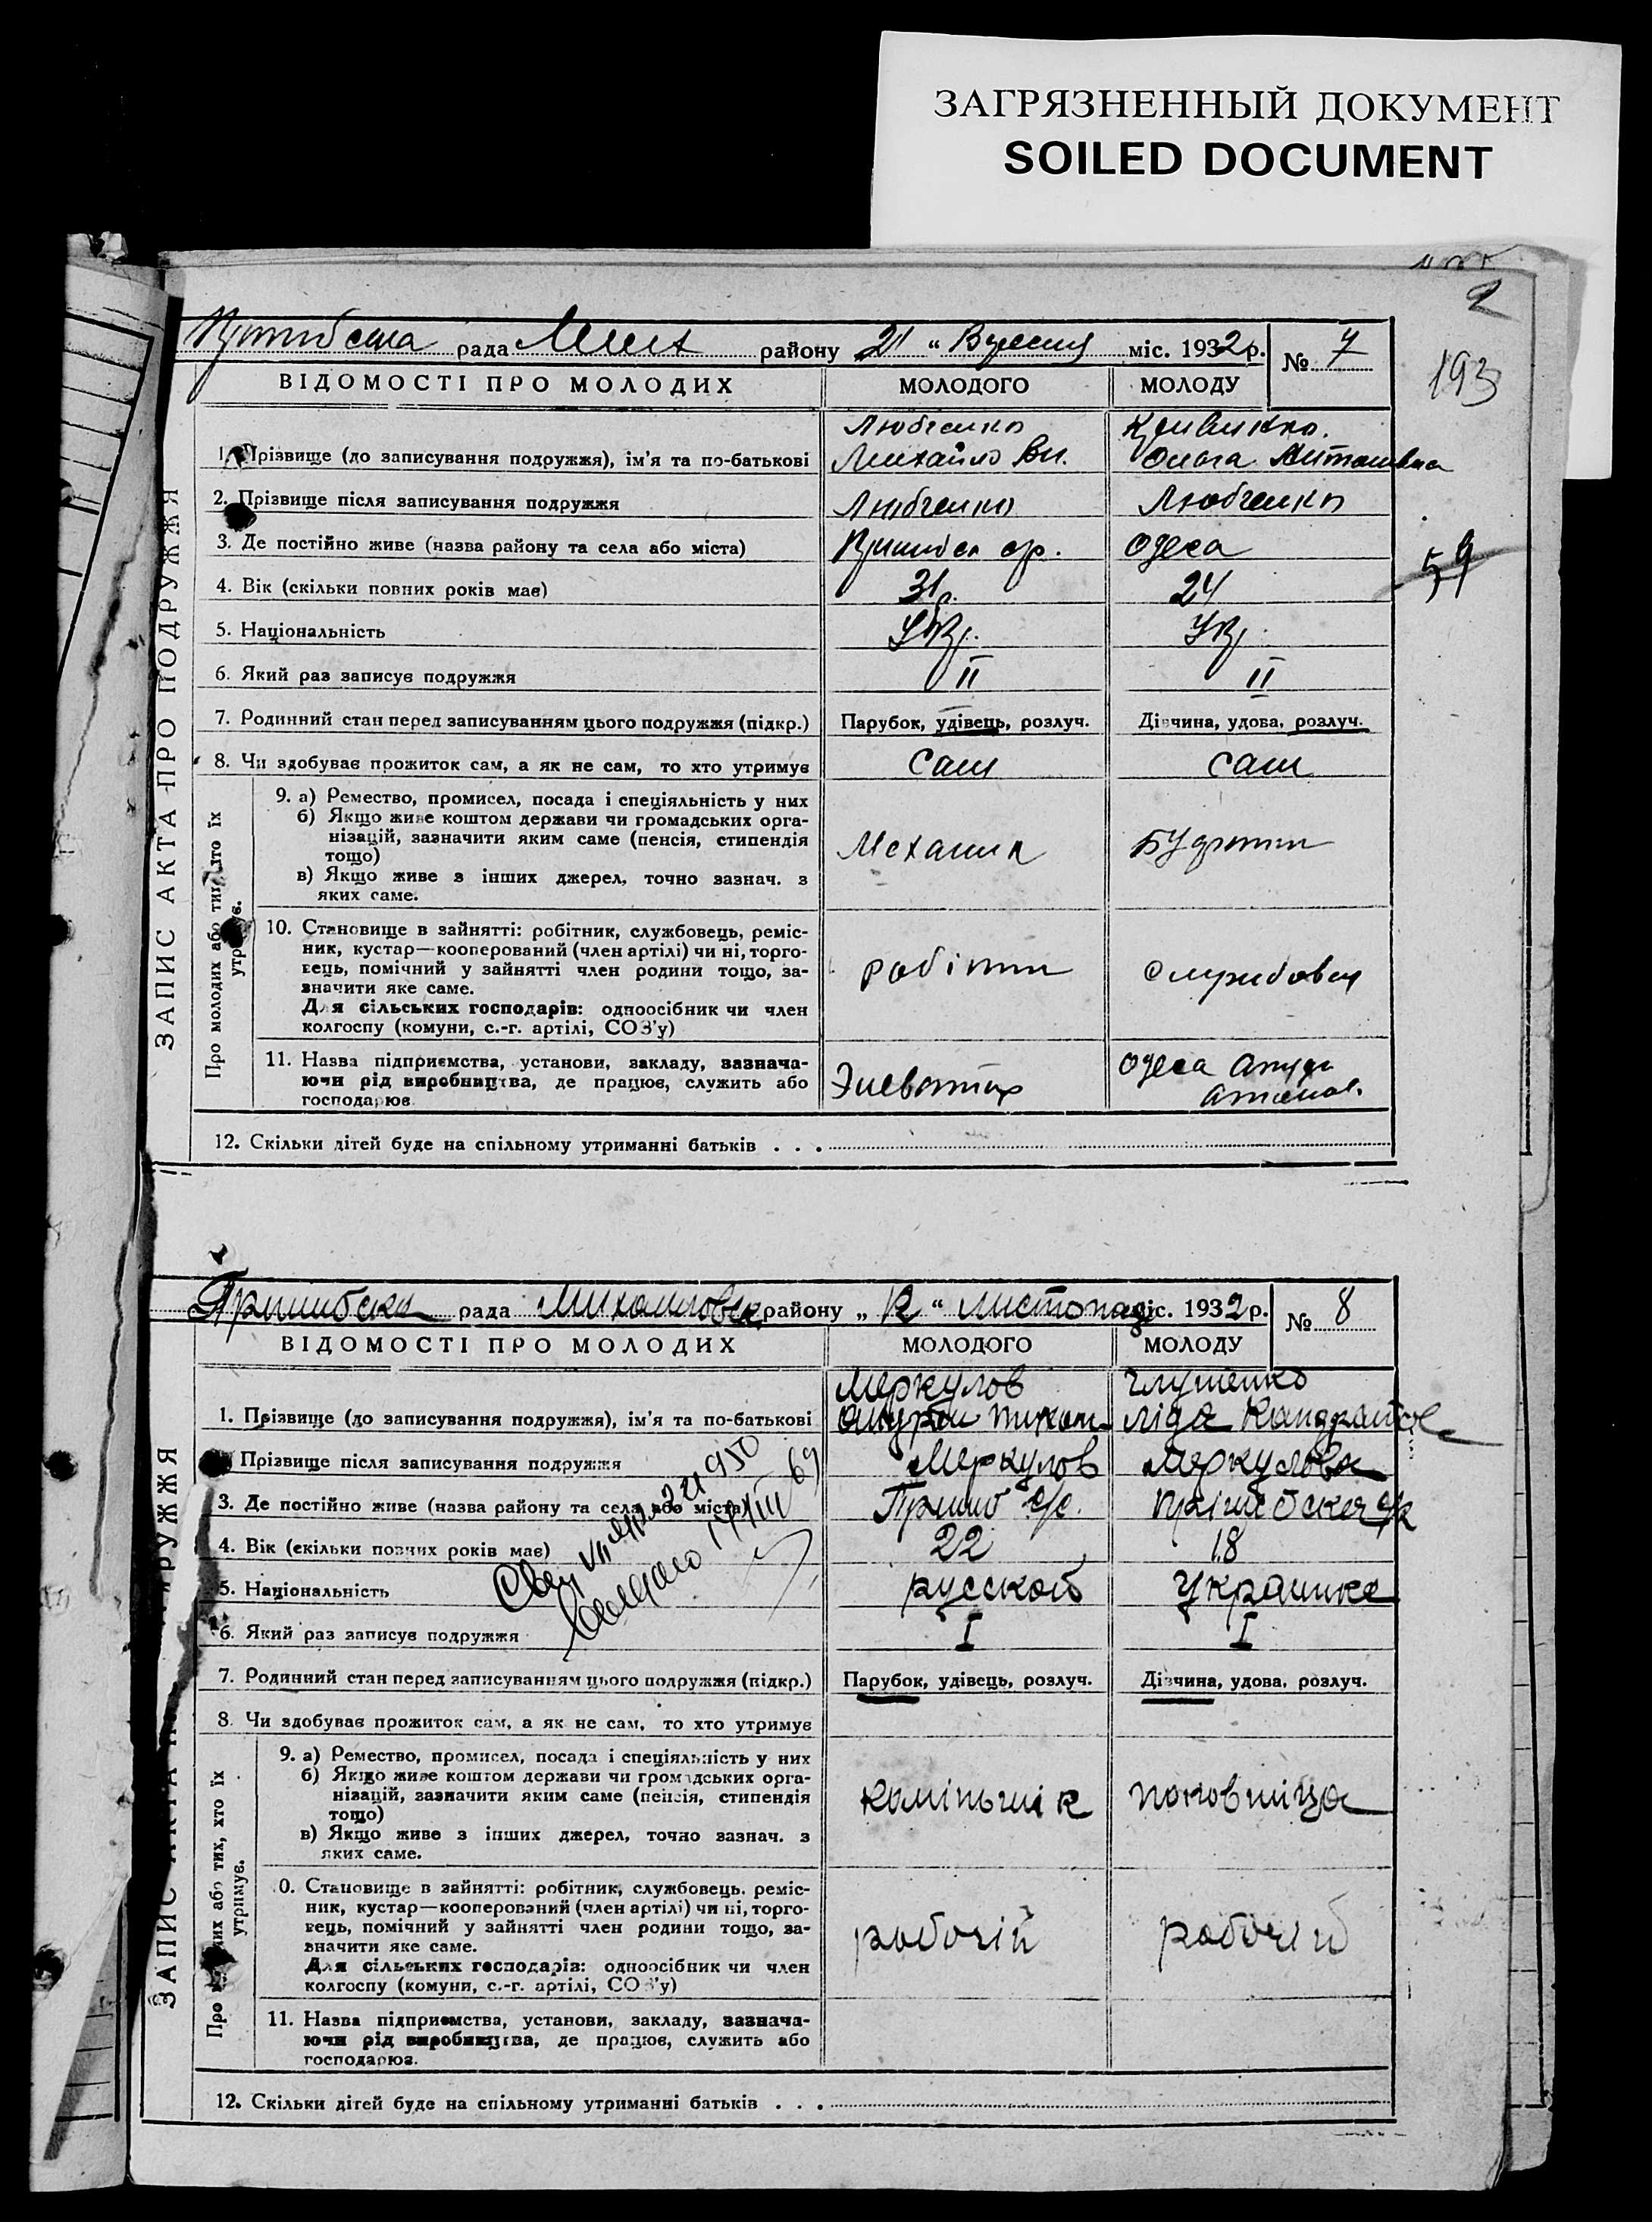 ЗАГРЯЗНЕННЫЙ ДОКУМЕНТ
SOILED DOCUMENT
2
193
59
ЗАПИС АКТА ПРО ПОДРУЖЖЯ
рада району 21 " Вересня міс. 1932 р. № 7
ВІДОМОСТІ ПРО МОЛОДИХ МОЛОДОГО МОЛОДУ
Любченко
1. Прізвище (до записування подружжя), ім'я та по-батькові Михайло Ольга
2. Прізвище після записування подружжя Любченко Любченко
3. Де постійно живе (назва району та села або міста) Одеса
4. Вік (скільки повних років має) 31 р. 24
5. Національність Укр. Укр.
6. Який раз записує подружжя II II
7. Родинний стан перед записуванням цього подружжя (підкр.) Парубок, удівець, розлуч. Дівчина, удова, розлуч.
8. Чи здобуває прожиток сам, а як не сам, то хто утримує Сам сам
Про молодих або тих, хто їх утримує.
9. а) Ремество, промисел, посада і спеціяльність у них
б) Якщо живе коштом держави чи громадських орга-
нізацій, зазначити яким саме (пенсія, стипендія
тощо) Механик
в) Якщо живе з інших джерел, точно зазнач. з
яких саме.
10. Становище в зайнятті: робітник, службовець, реміс-
ник, кустар—кооперований (член артілі) чи ні, торго-
вець, помічний у зайнятті член родини тощо, за-
значити яке саме. робітник службовец
Для сільських господарів: одноосібник чи член
колгоспу (комуни, с.-г. артілі, СОЗ'у)
11. Назва підприємства, установи, закладу, зазнача- Одеса
ючи рід виробництва, де працює, служить або Элеватор
господарює.
12. Скільки дітей буде на спільному утриманні батьків . . .
ЗАПИС АКТА ПРО ПОДРУЖЖЯ
Пришибска рада Михайловск району „ " листопад міс. 1932 р. № 8
ВІДОМОСТІ ПРО МОЛОДИХ МОЛОДОГО МОЛОДУ
Меркулов Глушенко
1. Прізвище (до записування подружжя), ім'я та по-батькові Андрей Тихон Ліда
2. Прізвище після записування подружжя Меркулов Меркулова
3. Де постійно живе (назва району та села або міста) Пришиб с/с. Прішибскя с/р
4. Вік (скільки повних років має) 22 18
5. Національність русской Украинка
6. Який раз записує подружжя I I
7. Родинний стан перед записуванням цього подружжя (підкр.) Парубок, удівець, розлуч. Дівчина, удова, розлуч.
8. Чи здобуває прожиток сам, а як не сам, то хто утримує
Про молодих або тих, хто їх утримує.
9. а) Ремество, промисел, посада і спеціяльність у них
б) Якщо живе коштом держави чи громадських орга-
нізацій, зазначити яким саме (пенсія, стипендія
тощо)
в) Якщо живе з інших джерел, точно зазнач. з
яких саме.
10. Становище в зайнятті: робітник, службовець, реміс-
ник, кустар—кооперований (член артілі) чи ні, торго-
вець, помічний у зайнятті член родини тощо, за-
значити яке саме. робочій робочій
Для сільських господарів: одноосібник чи член
колгоспу (комуни, с.-г. артілі, СОЗ'у)
11. Назва підприємства, установи, закладу, зазнача-
ючи рід виробництва, де працює, служить або
господарює.
12. Скільки дітей буде на спільному утриманні батьків . . .